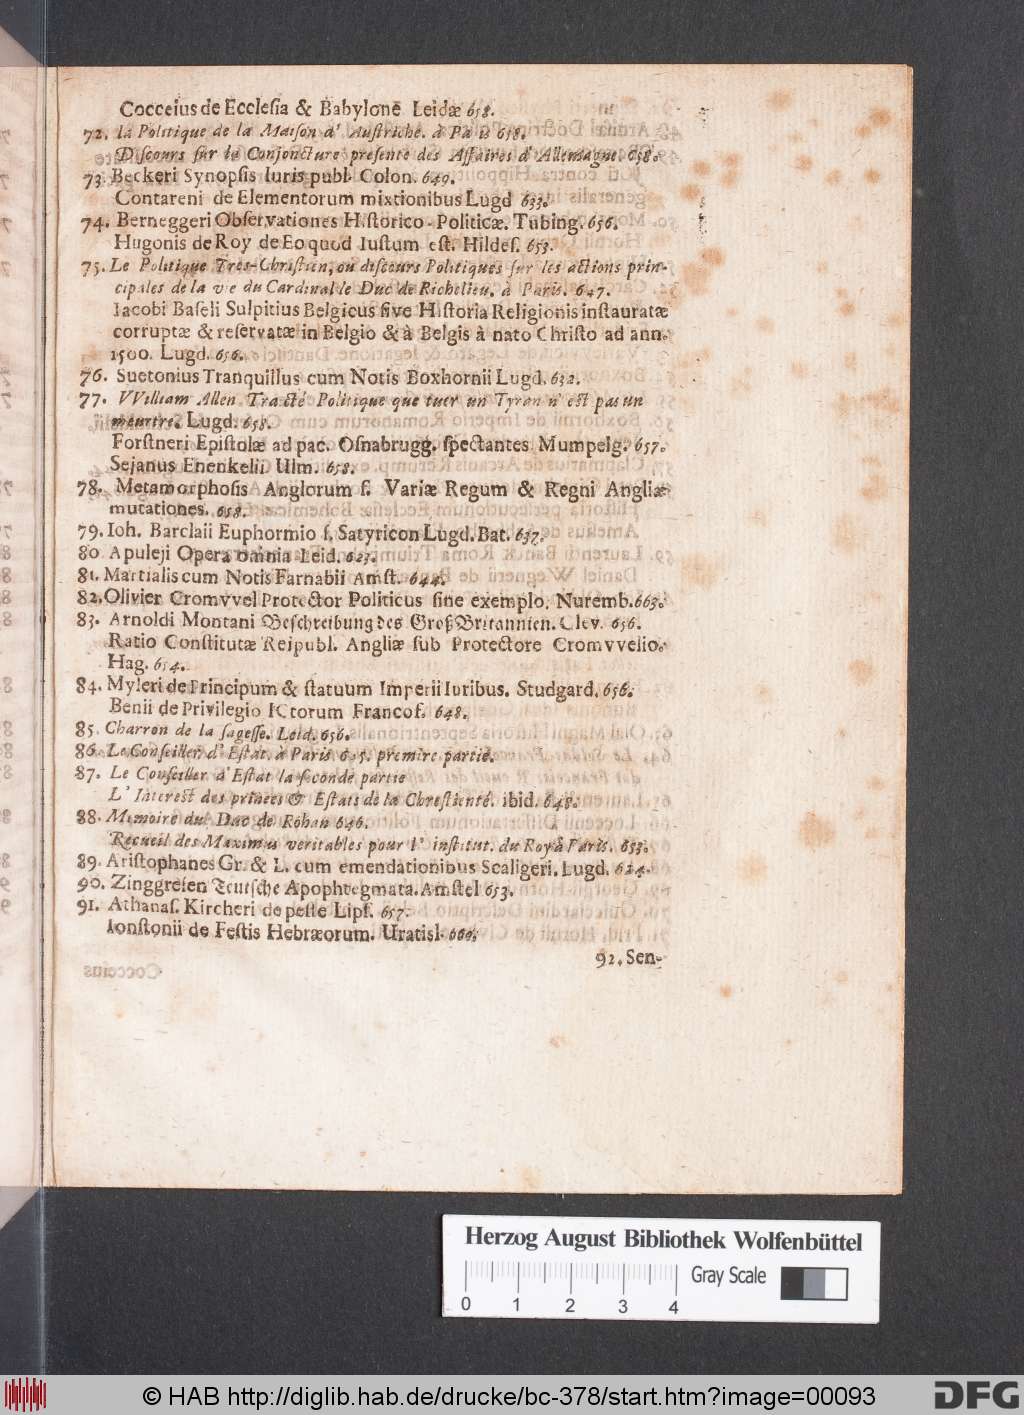 Cocceius de Ecclesia & Babylonē Leidæ 658.
72. la Politique de la Maison d' Austriche. à Pa is 658.
D scours sur le Conjoncture presente des Affaires d' Allemagne. 658.
73 Beckeri Synopsis Iuris publ. Colon. 649.
Contareni de Elementorum mixtionibus Lugd 633.
74. Berneggeri Observationes Historico-Politicæ. Tubing. 656.
Hugonis de Roy de Eo quod Iustum est. Hildes. 653.
75. Le Politique Tres-Christien, ou discours Politiques sur les actions prin-
cipales de la vie du Cardinal le Duc de Richelieu. à Paris. 647.
Iacobi Baseli Sulpitius Belgicus sive Historia Religionis instauratæ
corruptæ & reservatæ in Belgio & à Belgis à nato Christo ad ann.
1500. Lugd. 656.
76. Suetonius Tranquillus cum Notis Boxhornii Lugd. 632.
77. VVilliam Allen Tracté Politique que tuer un Tyran n' est pas un
meurtre. Lugd. 658.
Forstneri Epistolæ ad pac. Osnabrugg. spectantes Mumpelg. 657.
Sejanus Enenkelii Ulm. 658.
78. Metamorphosis Anglorum s. Variæ Regum & Regni Angliæ
mutationes. 658.
79. Ioh. Barclaii Euphormio s. Satyricon Lugd. Bat. 637.
80 Apuleji Opera omnia Leid. 623.
81. Martialis cum Notis Farnabii Amst. 644.
82. Olivier Cromvvel Protector Politicus sine exemplo. Nuremb. 663.
83. Arnoldi Montani Beschreibung des Groß Britannien. Clev. 656.
Ratio Constitutæ Reipubl. Angliæ sub Protectore Cromvvelio.
Hag. 654.
84. Myleri de Principum & statuum Imperii Iuribus. Studgard. 656.
Benii de Privilegio ICtorum Francof. 648.
85. Charron de la sagesse. Leid. 656.
86. Le Conseiller d' Estat. à Paris 645. premire partie.
87. Le Conseiller d' Estat la seconde partie
L' Interest des princes & Estats de la Chrestienté. ibid. 648.
88. Memoire du Duc de Rohan 646.
Recueil des Maximes veritables pour l' institut. du Roy à Paris. 653.
89. Aristophanes Gr. & L. cum emendationibus Scaligeri. Lugd. 624.
90. Zinggrefen Teutsche Apophtegmata. Amstel 653.
91. Athanas. Kircheri de peste Lips. 657.
Ionstonii de Festis Hebræorum. Uratisl. 660.
92. Sen-
Herzog August Bibliothek Wolfenbüttel
0 1 2 3 4
Gray Scale
© HAB http://diglib.hab.de/drucke/bc-378/start.htm?image=00093
DFG